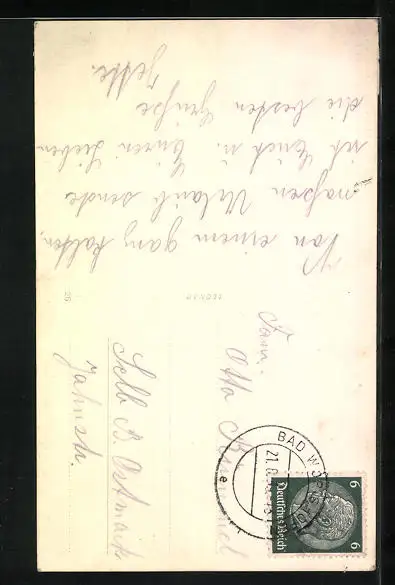 Von einem ganz kalten,
naßen Urlaub sende
ich Euch u. Euren Lieben
die besten Grüße
Jette.
LEONAR
Fam.
Otto
Selb B. Ostmark
Jahnstr.
BAD
21.
e
Deutsches Reich
6
6